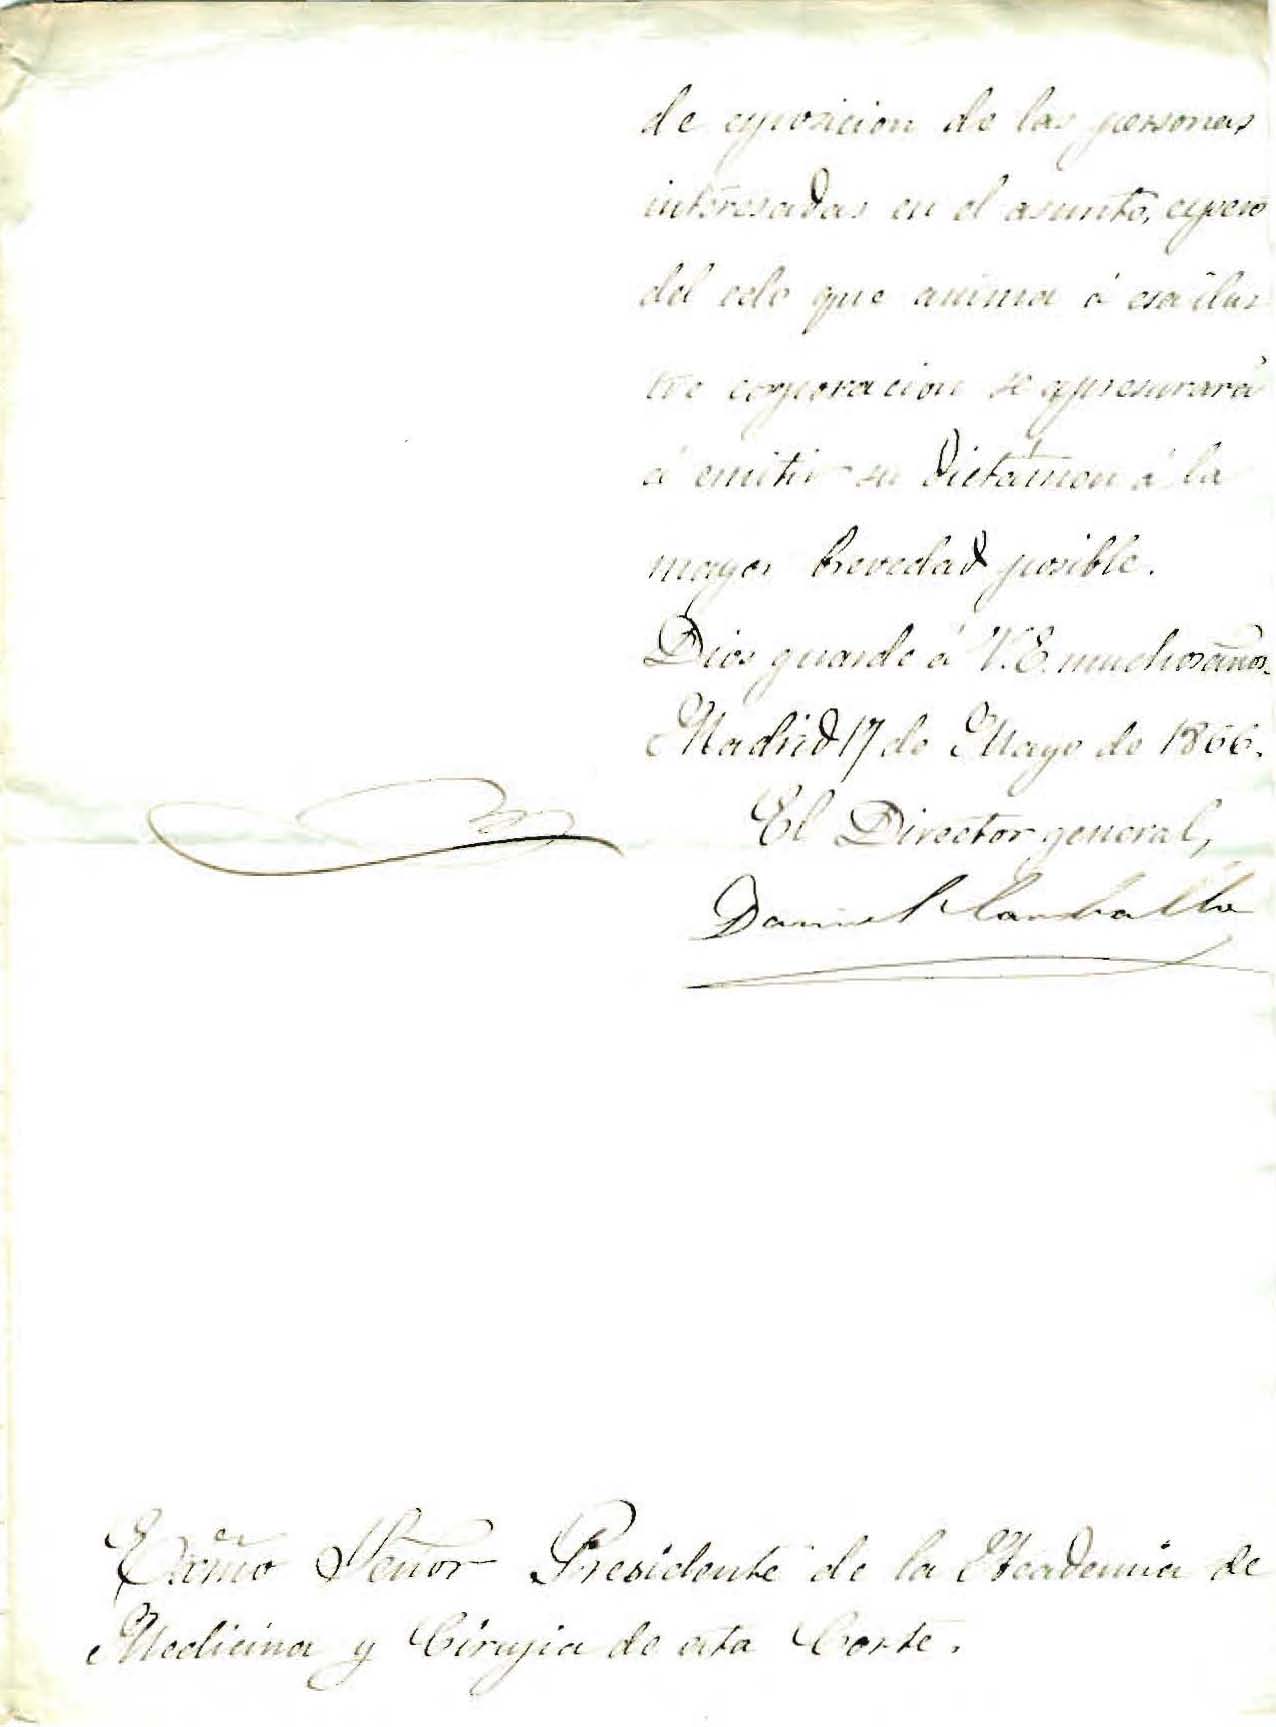 de esposicion de las personas
interesadas en el asunto, espero
del celo que anima á esa ilus
tre corporacion se apresurará
á emitir su dictámen á la
mayor brevedad posible.
Dios guarde á V.E. muchos años.
Madrid 17 de Mayo de 1866.
El Director general,
Daniel Carballo
Exmo Señor Presidente de la Academia de
Medicina y Cirujia de esta Corte.